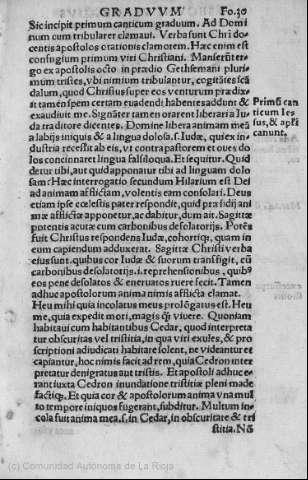 GRADVVM Fo.30
Sic incipit primum canticum graduum. Ad Domi
num cum tribularer clamaui. Verba sunt Chrī do
centis apostolos orationis clamorem. Hæc enim est
confugium primum viri Christiani. Manserūt er
go ex apostolis octo in prædio Gethsemani pluri
mum tristes, vbi nimium tribulantur, cogitātes scā
dalum, quod Christus super eos venturum prædix
it tamen spem certam euadendi habentes addunt &
exaudiuit me. Signāter tamen orarent liberari a Iu
da traditore dicentes. Domine libera animam meā
a labijs iniquis & a lingua dolosa. s. Iudæ, qui ex in
dustria recessit ab eis, vt contra pastorem et oues do
los concinnaret lingua falsiloqua. Et sequitur. Quid
detur tibi, aut quid apponatur tibi ad linguam dolo
sam? Hæc interrogatio secundum Hilarium est Dei
ad animam afflictam, volentis eam consolari. Deus
etiam ipse cœlestis pater respondit, quid præsidij ani
mæ afflictæ apponetur, ac dabitur, dum ait. Sagittæ
potentis acutæ cum carbonibus desolatorijs. Potēs
fuit Christus respondens Iudæ, cohortiq;, quam in
eum capiendum adduxerat. Sagittæ Christi verba
eius sunt. quibus cor Iudæ & suorum transfigit, cū
carbonibus desolatorijs. i. reprehensionibus, quib9
eos pene desolatos & eneruatos ruere fecit. Tamen
adhuc apostolorum animā nimis afflicta clamat.
Heu mihi quia incolatus meus prolōgatus est. Heu
me, quia expedit mori, magis q̄ viuere. Quoniam
habitaui cum habitantibus Cedar, quod interpreta
tur obscuritas vel tristitia, in qua viri exules, & pro
scriptioni adiudicati habitare solent, ne videantur et
capiantur, hoc nimis facit ad rem, quia Cedron inter
pretatur denigratus aut tristis. Et apostoli adhuc e
rant iuxta Cedron inundatione tristitiæ pleni made
factiq;. Et quia cor & apostolorum anima vna mul
to tempore iniquos fugerant, subditur. Multum in
cola fuit anima mea. s. in Cedar, in obscuritate & tri
stitia. Nā
Primū can
ticum Ie
sus, & apłi
canunt.
(c) Comunidad Autónoma de La Rioja